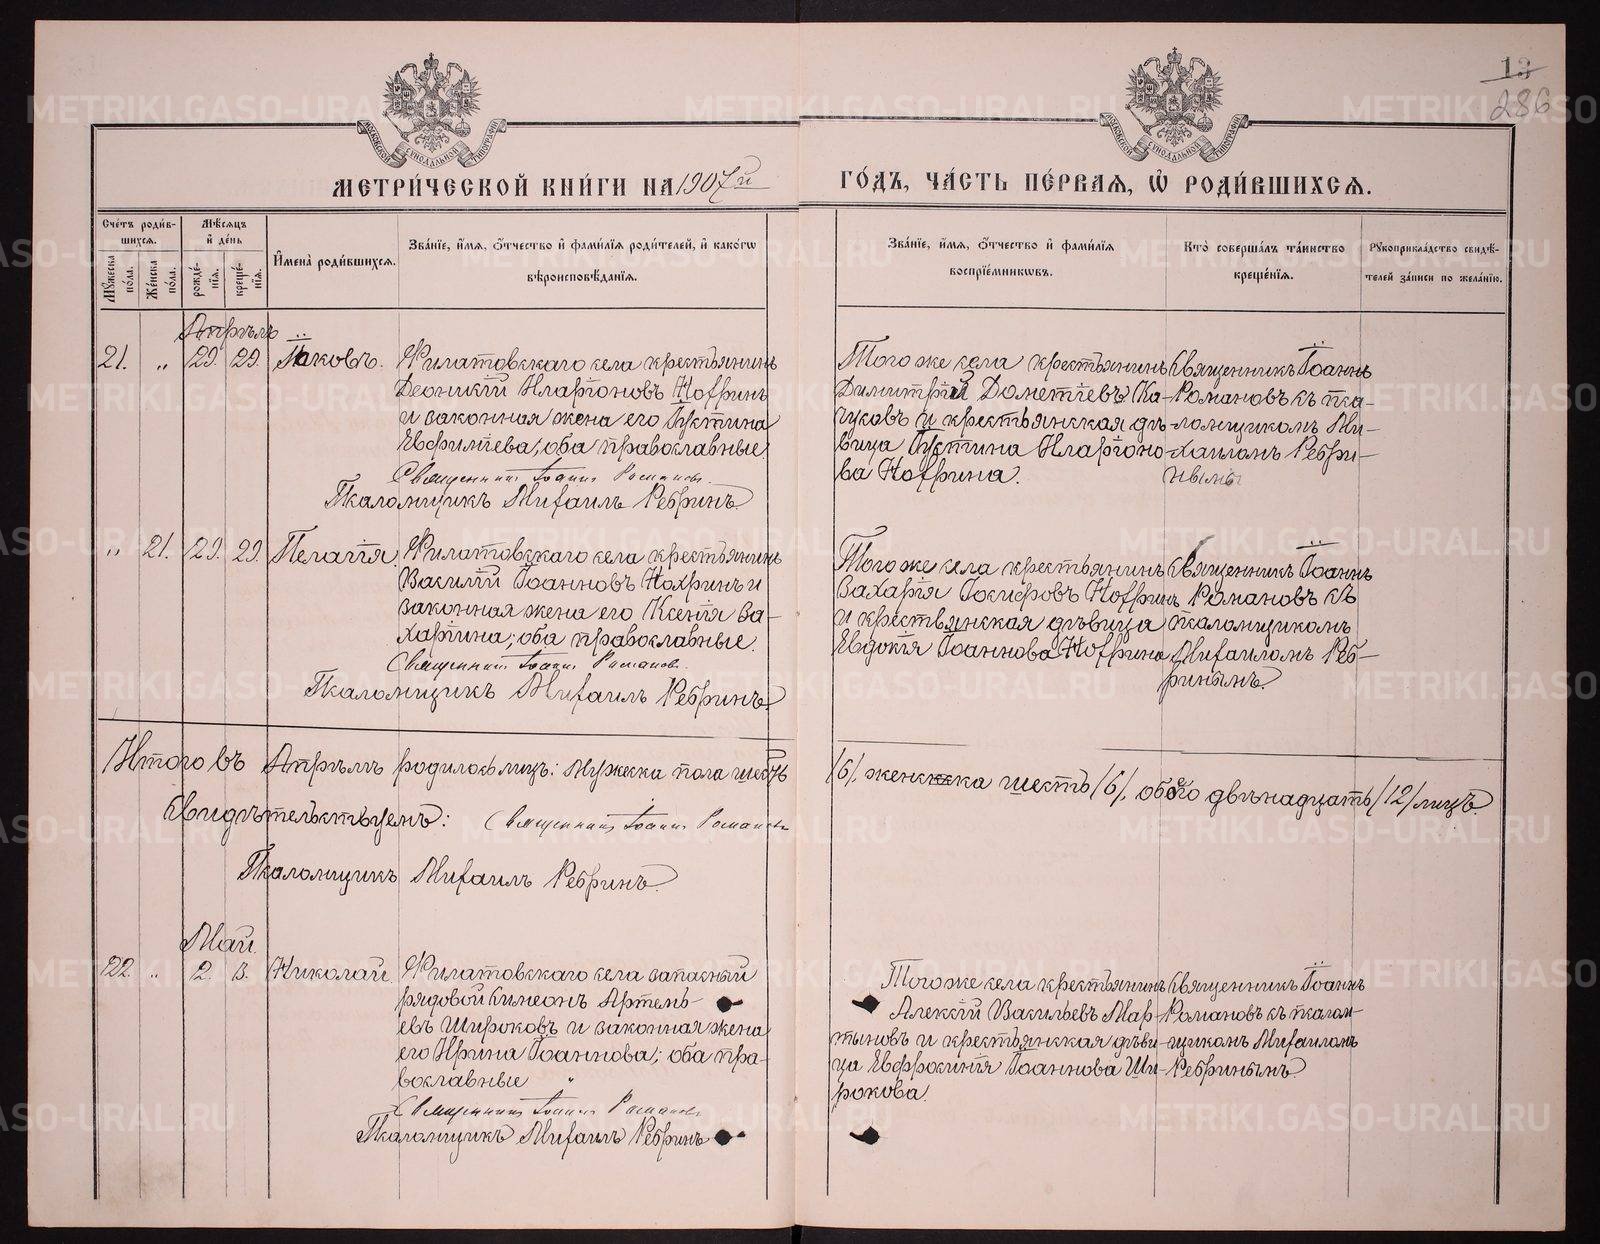 13
286
МОСКОВСКОЙ СѴНОДАЛЬНОЙ ТИПОГРАФІИ
МОСКОВСКОЙ СѴНОДАЛЬНОЙ ТИПОГРАФІИ
МЕТРИ́ЧЕСКОЙ КНИ́ГИ НА 1907й
ГО́ДЪ, ЧА́СТЬ ПЕ́РВАЯ, Ѽ РОДИ́ВШИХСЯ.
Сче́тъ роди́в-
шихся.
Мꙋ́жеска по́ла.
Же́нска по́ла.
Мѣ́сяцъ
и҆ де́нь
рожде́-
нїя.
креще́-
нїя.
И҆мена̀ роди́вшихся.
Зва́нїе, и҆́мя, ѻ҆́тчество и҆ фами́лїя роди́телей, и҆ како́гѡ
вѣроисповѣ́данїя.
Зва́нїе, и҆́мя, ѻ҆́тчество и҆ фами́лїя
воспрїе́мникѡвъ.
Кто̀ соверша́лъ та́инство
креще́нїя.
Рꙋкоприкла́дство свидѣ́-
телей за́писи по жела́нїю.
Апрѣль
21. „ 29. 29. Іаковъ.
Филатовскаго села крестьянинъ
Леонидъ Иларіоновъ Нохринъ
и законная жена его Іустина
Евфиміева; оба православные.
Священникъ Іоаннъ Романовъ.
Псаломщикъ Михаилъ Ребринъ.
Того же села крестьянинъ
Димитрій Дометіевъ Ка-
чуковъ и крестьянская дѣ-
вица Іустина Иларіоно-
ва Нохрина.
Священникъ Іоаннъ
Романовъ съ пса-
ломщикомъ Ми-
хаиломъ Ребри-
нымъ
„ 21. 29. 29. Пелагія.
Филатовскаго села крестьянинъ
Василій Іоанновъ Нохринъ и
законная жена его Ксенія За-
харіина; оба православные.
Священникъ Іоаннъ Романовъ.
Псаломщикъ Михаилъ Ребринъ.
Того же села крестьянинъ
Захарія Іосифовъ Нохринъ
и крестьянская дѣвица
Евдокія Іоаннова Нохрина
Священникъ Іоаннъ
Романовъ съ
псаломщикомъ
Михаиломъ Реб-
ринымъ.
Итого въ Апрѣлѣ родилось лицъ: мужеска пола шесть
/6/, женска шесть /6/, обоего двѣнадцать /12/ лицъ.
Свидѣтельствуемъ: Священникъ Іоаннъ Романовъ
Псаломщикъ Михаилъ Ребринъ.
Май.
22. „ 2. 3. Николай.
Филатовскаго села запасный
рядовой Симеонъ Артемь-
евъ Широковъ и законная жена
его Ирина Іоаннова; оба пра-
вославные
Священникъ Іоаннъ Романовъ
Псаломщикъ Михаилъ Ребринъ
Того же села крестьянинъ
Алексій Васильевъ Мар-
тыновъ и крестьянская дѣви-
ца Евфросинія Іоаннова Ши-
рокова.
Священникъ Іоаннъ
Романовъ съ псалом-
щикомъ Михаиломъ
Ребринымъ.
METRIKI.GASO-URAL.RU